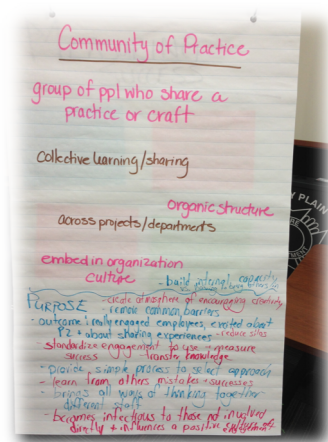 Community of Practice
group of ppl who share a
practice or craft
collective learning/sharing
organic structure
across projects/departments
embed in organization
culture
- build internal capacity
PURPOSE
- create atmosphere of encouraging creativity
- remove common barriers
- outcome: really engaged employees, excited about
P2 + about sharing experiences
- reduce silos
standardize engagement to use + measure
success
- transfer knowledge
- provide simple process to select approach
- learn from others mistakes + successes
- brings all ways of thinking together
different staff
- becomes infectious to those not involved
directly + influences a positive
PLAIN